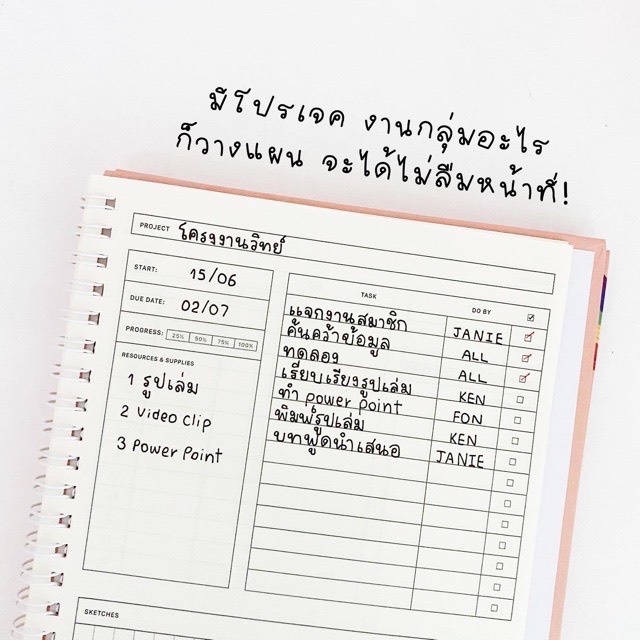 มีโปรเจค งานกลุ่มอะไร
ก็วางแผน จะได้ไม่ลืมหน้าที่!
PROJECT โครงงานวิทย์
START: 15/06
DUE DATE: 02/07
PROGRESS: 25% 50% 75% 100%
RESOURCES & SUPPLIES
1 รูปเล่ม
2 Video Clip
3 Power Point
TASK DO BY
แจกงานสมาชิก JANIE
ค้นคว้าข้อมูล ALL
ทดลอง ALL
เรียบเรียงรูปเล่ม KEN
ทำ power point FON
พิมพ์รูปเล่ม KEN
บทพูดนำเสนอ JANIE
SKETCHES